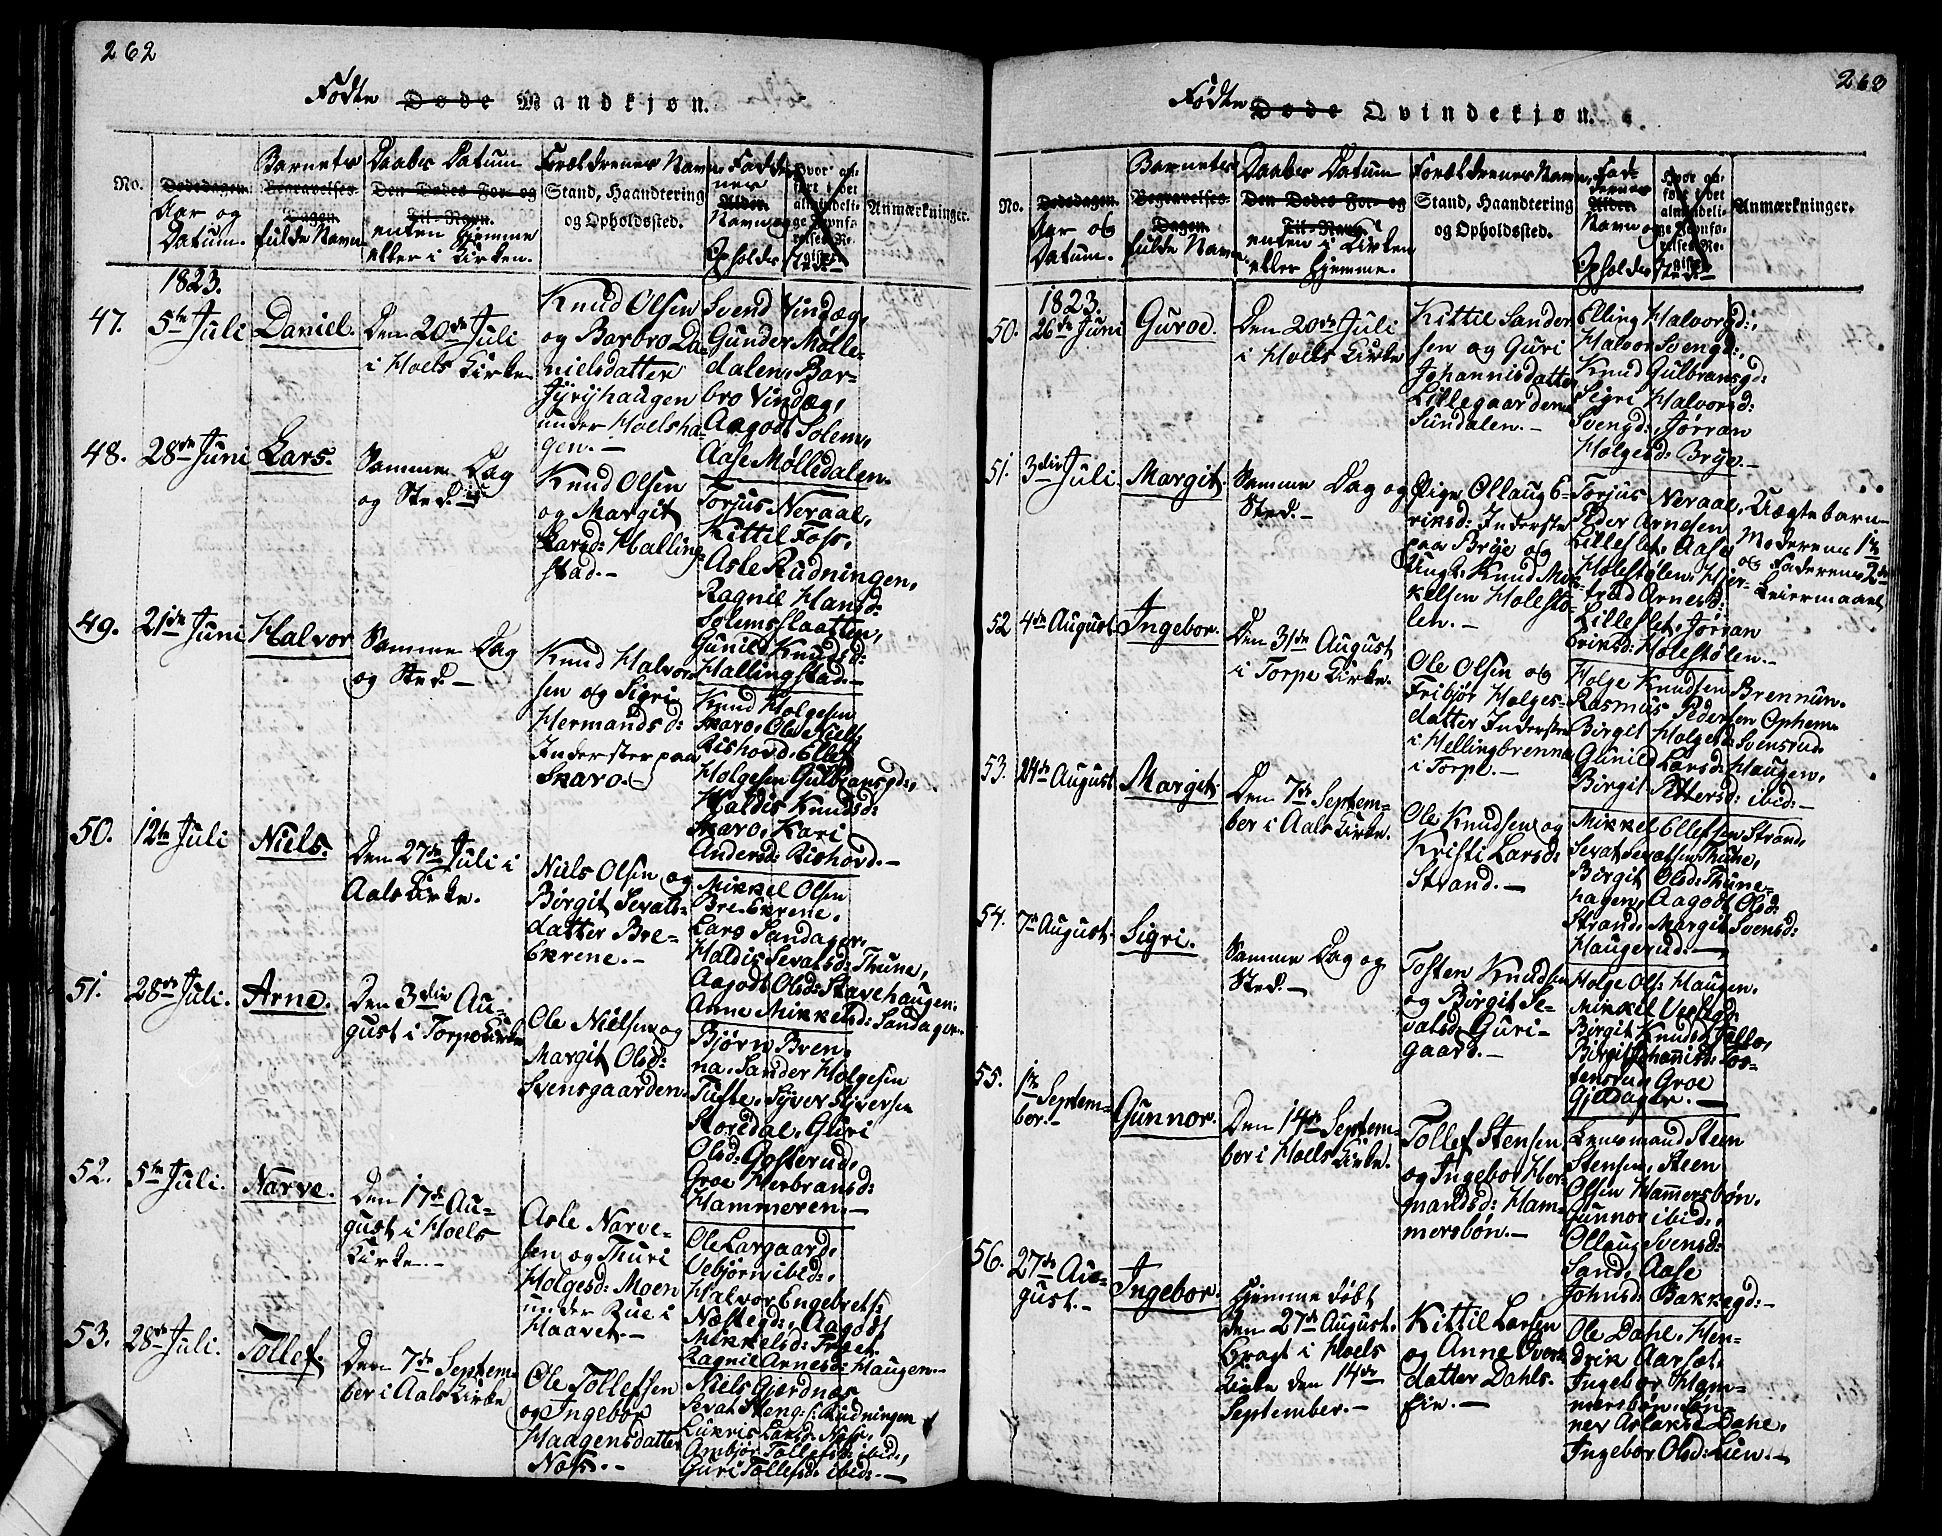 262
Fødte Døde Mandkjøn.
No.
Dødsdagen.
Aar og
Datum.
Barnets
Begravelses-
Dagen.
fulde Navn
Daabs Datum
Den Dødes For- og
Til-Navn.
enten hjemme
eller i Kirken.
Forældrenes Navn,
Stand, Haandtering
og Opholdssted.
Fadder-
nes
Alder.
Navn og
Opholds Sted
Hvor an-
ført i det
almindeli-
ge Jevnfø-
relses-Re-
gister.
Anmærkninger.
1823.
47.
5te Juli
Daniel.
Den 20de Juli
i Hoels Kirke
Knud Olsen
og Barbro Da-
nielsdatter
Jyryhaugen
under Hoelsha-
gen.-
Svend Vindæg,
Gunder Mølle-
dalen, Bar-
bro Vindæg,
Aagodt Solem,
Aase Mølledalen.
48.
28de Juni
Lars.
Samme Dag
og Sted.
Knud Olsen
og Margit
Larsd: Halling-
stad.-
Torjus Neraal,
Kittil Foss,
Asle Rudningen,
Ragnil Hansd:
Solemsslaatten,
Gunild Knudsd:
Hallingstad.-
49.
21de Juni
Halvor
Samme Dag
og Sted.-
Knud Halvor-
sen og Sigri
Hermandsd:
Inderster paa
Skaro.-
Knud Holgesen
Skaro, Ole Niels:
Rishovd, Ellef
Holgesen Gulbransgd:,
Haldis Knudsd:
Skaro, Kari
Andersd: Rishovd.-
50.
12te Juli
Niels.
Den 27de Juli i
Aals Kirke.
Niels Olsen og
Birgit Sevats-
datter Bre-
Ekrene.-
Mikkel Olsen
Bre-Ekrene,
Lars Sandager,
Haldis Sevatsd: Thune,
Aagodt Olsd: Stavehaugen.
Anne Mikkelsd: Sandager.
51.
28de Juli.
Arne.
Den 3die Au-
gust i Torpe Kirke
Ole Nielsen og
Margit Olsd:
Svensgaarden.
Bjørn Bren-
na, Sander Holgesen
Tufte, Syver Syversen
Storedal, Guri
Olsd: Golterud,
Groe Herbransd:
Hammeren.-
52.
5te Juli.
Narve.
Den 17de Au-
gust i Hoels
Kirke.-
Asle Narve-
sen og Thuri
Holgesd: Moen
under Rue i
Haavet.-
Ole Largaard,
Vebjørn ibid:,
Halvor Engebrets:
Næstegd:, Aagodt
Mikkelsd: Træet
Ragnil Arnesd: Haugen-
53.
28de Juli.
Tollef.
Den 7de Septem-
ber i Aals Kirke
Ole Tollefsen
og Ingebor
Haagensdatter
Nøss.-
Niels Gjerdnøs
Sevat Steng: f: Rudningen
Lukris Larsd: Nøss,
Ambjør Tollefsd: ibid:,
Guri Tollefsd: ibid:-
263
Fødte Døde Qvindekjøn.
No.
Dødsdagen.
Aar og
Datum.
Barnets
Begravelses-
Dagen.
fulde Navn.
Daabs Datum
Den Dødes For- og
Til-Navn.
enten i Kirken
eller hjemme.
Forældrenes Navn,
Stand, Haandtering
og Opholdssted.
Fad-
dernes
Alder.
Navn og
Opholds Sted
Hvor an-
ført i det
almindeli-
ge Jevnfø-
relses-Re-
gister.
Anmærkninger.
1823.
50.
26de Juni
Guroe.
Den 20de Juli
i Hoels Kirke
Kittil Sander-
sen og Guri
Johannisdatter
Lillegaarden
Sundalen.-
Elling Halvorgd:,
Halvor Svengd:,
Knud Gulbransgd:
Sigri Halvorsd:
Svengd:, Jørran
Holgesd: Brye.-
51.
3die Juli.
Margit.
Samme Dag og
Sted.-
Pige Ollaug E-
riksd: Inderste
paa Brye og
Ungk. Knud Mik-
kelsen Holestø-
len.-
Torjus Neraal,
Peder Arnesen
Lilleslet, Aase
Holestølen, Hjer-
trud Arnesd:
Lilleslet, Jørran
Eriksd: Holestølen.-
Uægte barn-
Moderens 1te
og Faderens 2det
Leiermaael
52
4de August
Ingebor.
Den 31de August
i Torpe Kirke.
Ole Olsen og
Fribjør Holges-
datter Inderste
i Hellingbrenna
i Torpe.-
Holge Knudsen Brennun.
Rasmus Pedersen Ophem
Birgit Holgesd: Svensrud.
Gunild Larsd: Haugen,
Birgit Pettersd: ibid:-
53.
24de August
Margit
Den 7de Septem-
ber i Aals Kirke.
Ole Knudsen og
Kristi Larsd:
Strand.-
Mikkel Ellefsen Strand,
Sevat Sevatsen Thune,
Birgit Olsd: Thune-
hagen, Aagodt Olsd:
Strand, Margit Svensd:
Haugerud.-
54.
7de August.
Sigri.
Samme Dag og
Sted.-
Tosten Knudsen
og Birgit Se-
vatsd: Guri-
gaard.-
Holge Ols: Haugen,
Mikkel
Birgit Knudsd:
Birgit Johannisd: Tos-
tensrud, Groe
Gjeldager.-
55.
1te Septem-
ber.-
Gunnor.
Den 14de Septem-
ber i Hoels Kirke.
Tollef Stensen
og Ingebor Her-
mandsd: Ham-
mersbøn.-
Lensmand Steen
Stensen, Steen
Olsen Hammersbøn,
Gunnor ibid:,
Ollaug Svensd:
Sand, Aase
Johnsd: Bakkegd:-
56.
27de Au-
gust.-
Ingebor.
Hjemme døbt
den 27de August.
Bragt i Hoels
Kirke den 14de
September.-
Kittil Larsen
og Anne Overs-
datter Dahls-
Eie.-
Ole Dahle, Hen-
drik Aarset,
Ingebor Ham-
mersbøn, Gun-
ner Aslaksd: Dahle,
Ingebor Olsd: Lien.-